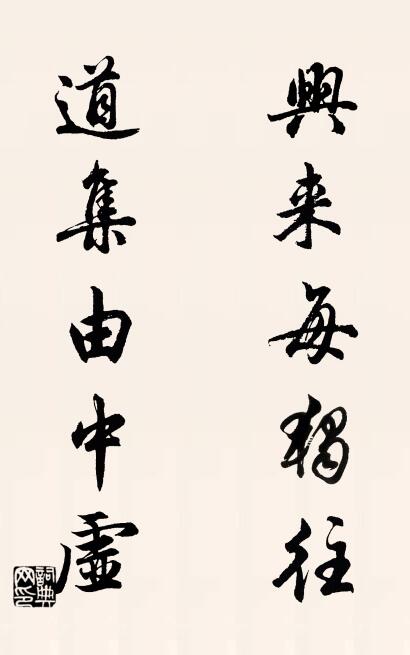 興来每獨往
道集由中虛
詞典网印